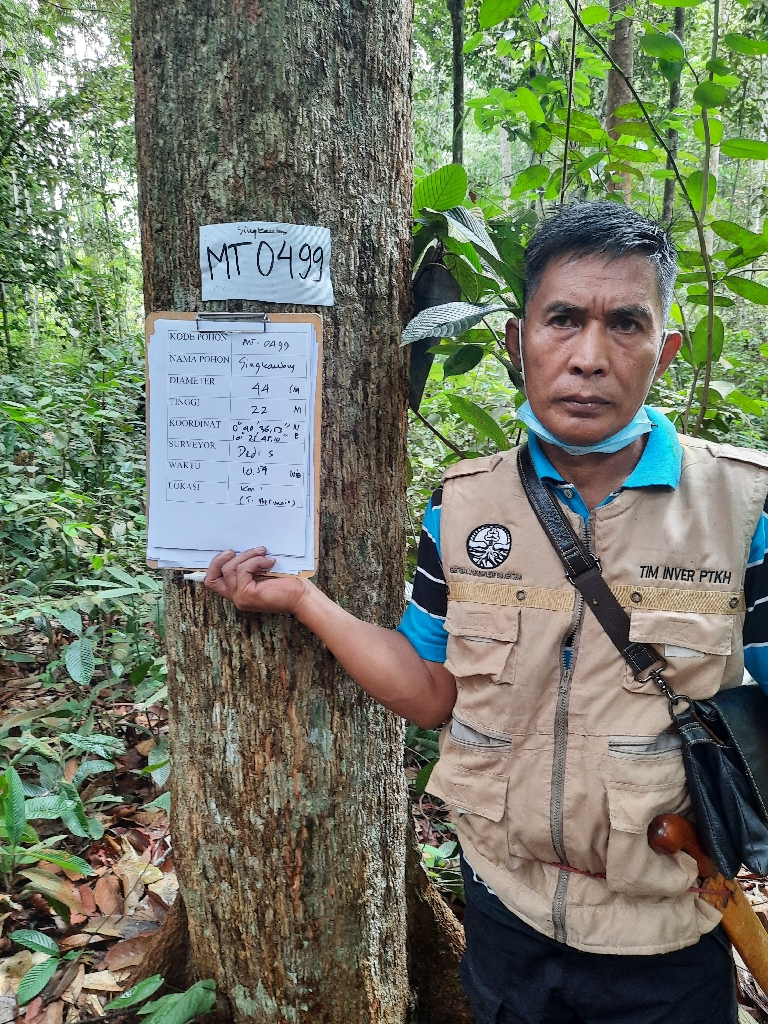 Singkawang
MT 0499
KODE POHON MT-0499
NAMA POHON Singkawang
DIAMETER 44 CM
TINGGI 22 M
KOORDINAT 0° 40' 36,53" N
SURVEYOR Dedi S
WAKTU 10.54 WIB
LOKASI Km 1
TIM INVER PTKH